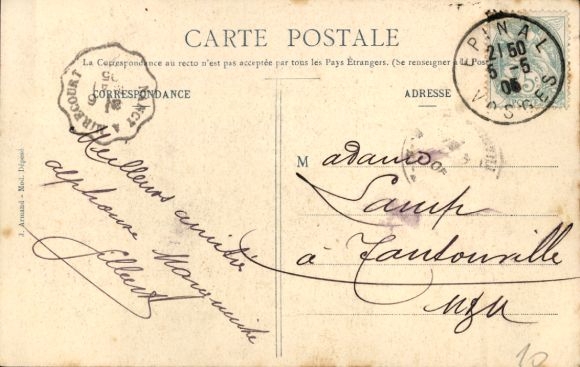 CARTE POSTALE
La Correspondance au recto n'est pas acceptée par tous les Pays Étrangers. (Se renseigner à la Poste
CORRESPONDANCE
ADRESSE
EPINAL
21 50
5 - 5
06
VOSGES
5
NANCY A MIRECOURT
J. Armand - Mod. Déposé
Meilleurs amitiés
alphonse Marguerite
M adame
Lamp
à Tantonville
M&M
10